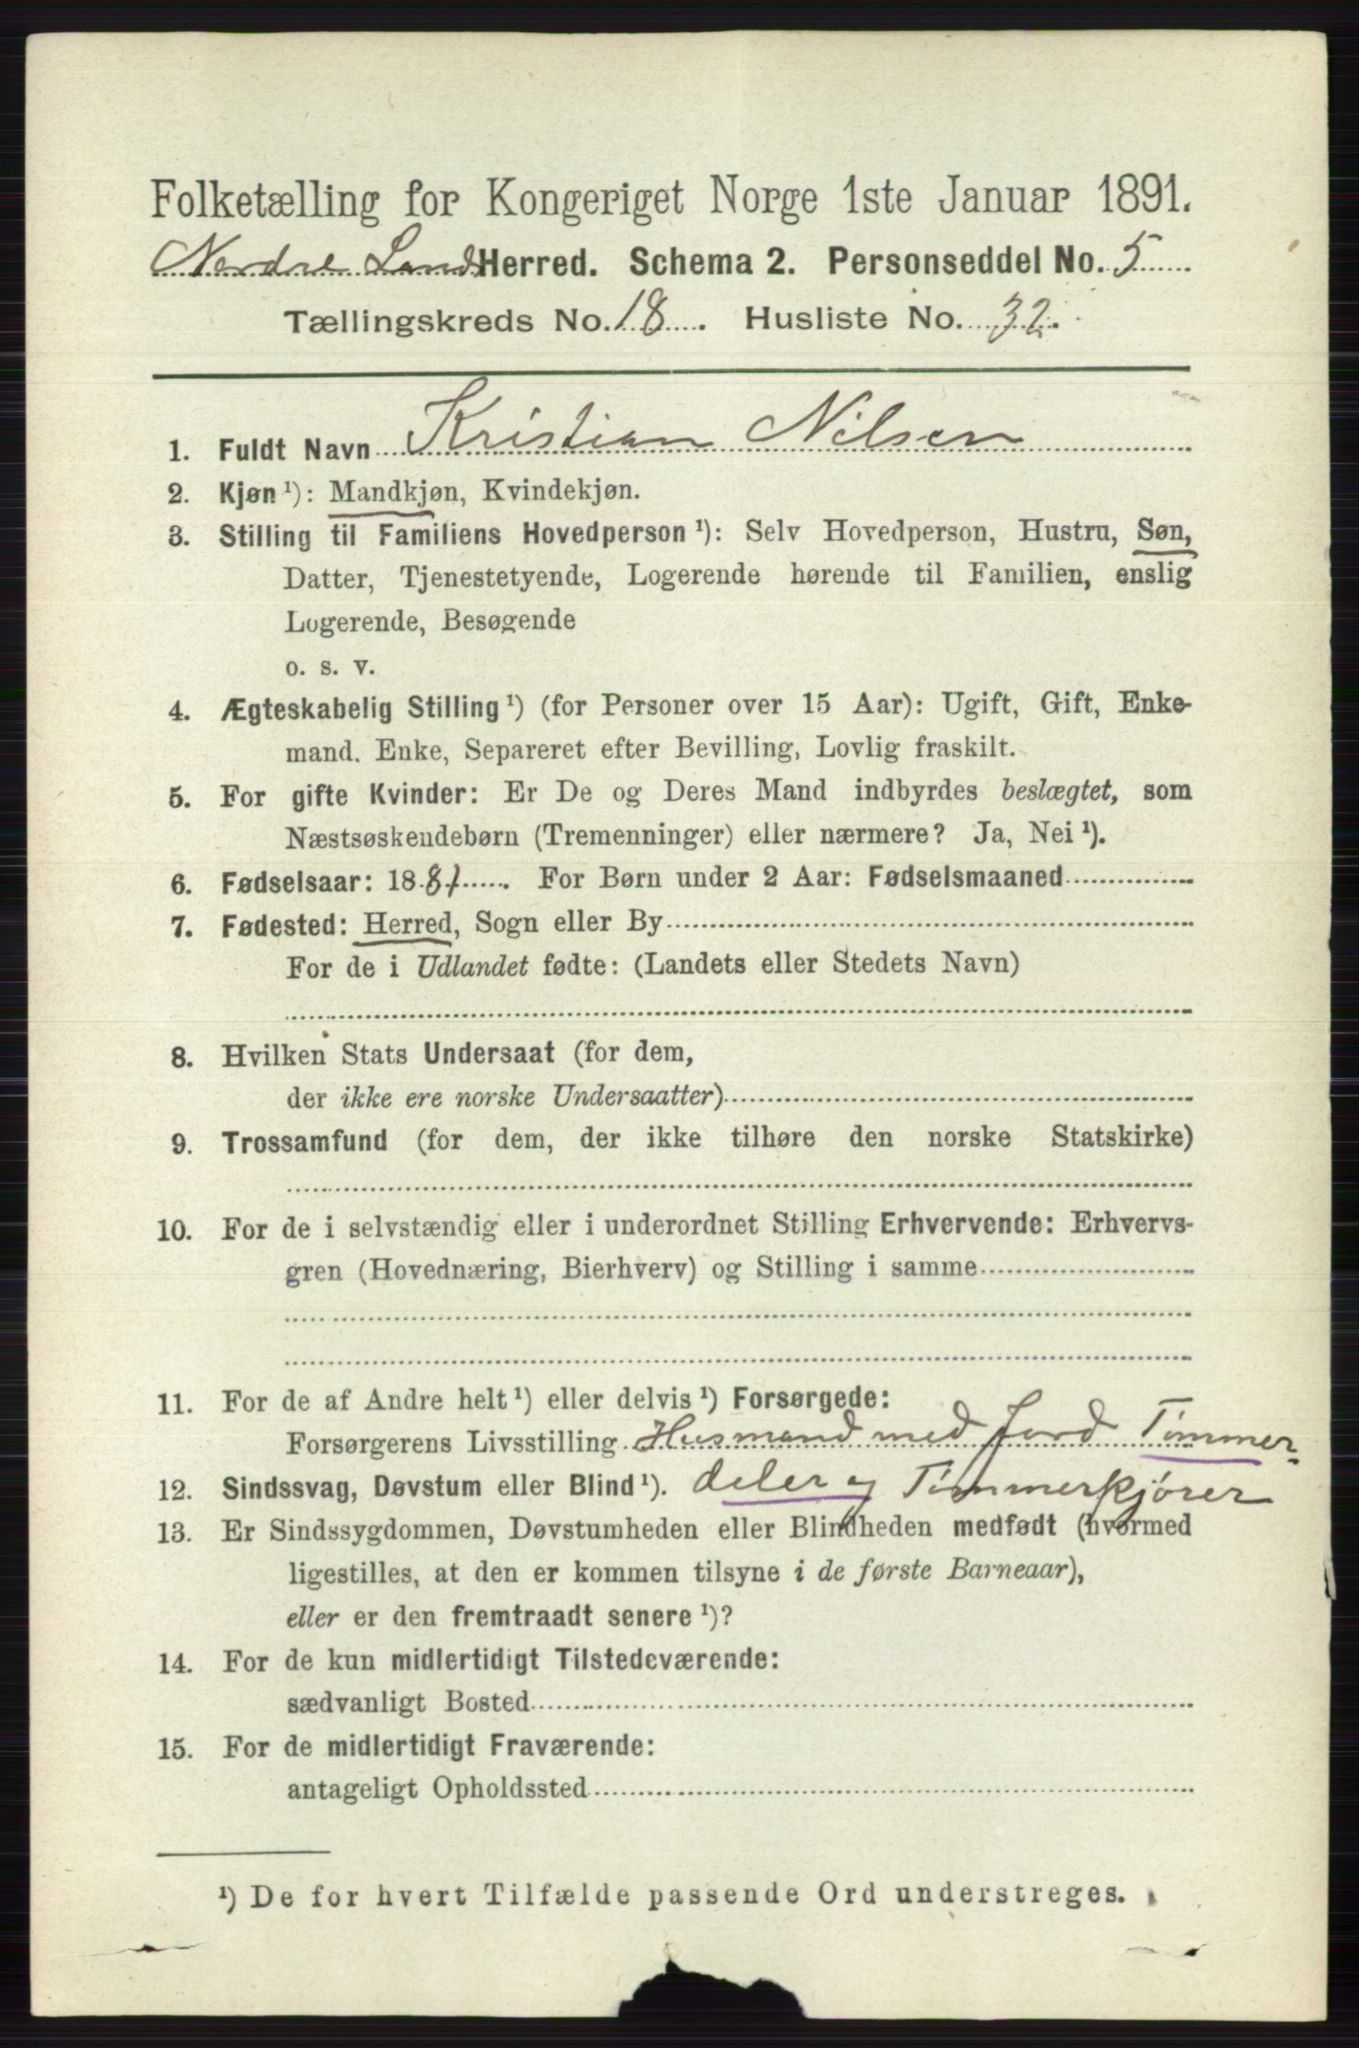 Folketælling for Kongeriget Norge 1ste Januar 1891.
Nordre Land Herred. Schema 2. Personseddel No. 5
Tællingskreds No. 18. Husliste No. 32.
1. Fuldt Navn Kristian Nilsen
2. Kjøn ¹): Mandkjøn, Kvindekjøn.
3. Stilling til Familiens Hovedperson ¹): Selv Hovedperson, Hustru, Søn,
Datter, Tjenestetyende, Logerende hørende til Familien, enslig
Logerende, Besøgende
o. s. v.
4. Ægteskabelig Stilling ¹) (for Personer over 15 Aar): Ugift, Gift, Enke-
mand. Enke, Separeret efter Bevilling, Lovlig fraskilt.
5. For gifte Kvinder: Er De og Deres Mand indbyrdes beslægtet, som
Næstsøskendebørn (Tremenninger) eller nærmere? Ja, Nei ¹).
6. Fødselsaar: 1881. For Børn under 2 Aar: Fødselsmaaned
7. Fødested: Herred, Sogn eller By
For de i Udlandet fødte: (Landets eller Stedets Navn)
8. Hvilken Stats Undersaat (for dem,
der ikke ere norske Undersaatter)
9. Trossamfund (for dem, der ikke tilhøre den norske Statskirke)
10. For de i selvstændig eller i underordnet Stilling Erhvervende: Erhvervs-
gren (Hovednæring, Bierhverv) og Stilling i samme
11. For de af Andre helt ¹) eller delvis ¹) Forsørgede:
Forsørgerens Livsstilling Husmand med Jord Tømmer-
12. Sindssvag, Døvstum eller Blind ¹). deler og Tømmerkjører
13. Er Sindssygdommen, Døvstumheden eller Blindheden medfødt (hvormed
ligestilles, at den er kommen tilsyne i de første Barneaar),
eller er den fremtraadt senere ¹)?
14. For de kun midlertidigt Tilstedeværende:
sædvanligt Bosted
15. For de midlertidigt Fraværende:
antageligt Opholdssted
¹) De for hvert Tilfælde passende Ord understreges.